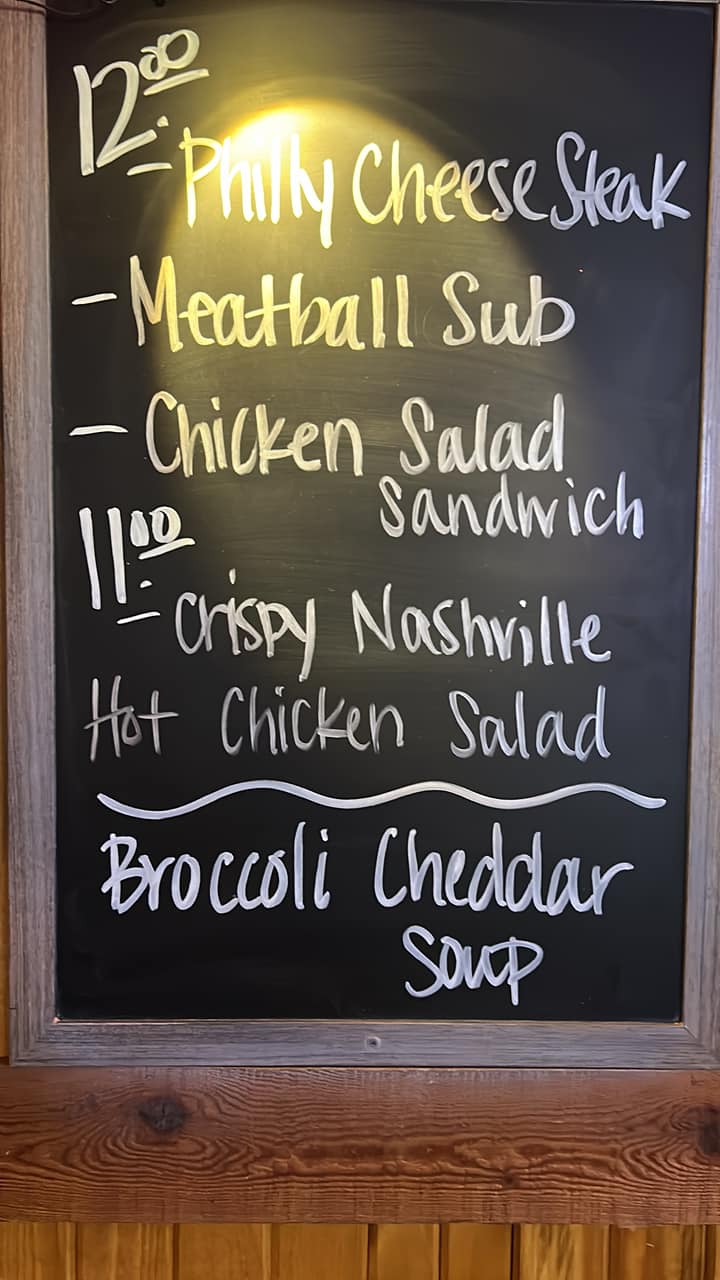 12.00
- Philly Cheese Steak
- Meatball Sub
- Chicken Salad
Sandwich
11.00
- Crispy Nashville
Hot Chicken Salad
Broccoli Cheddar
Soup